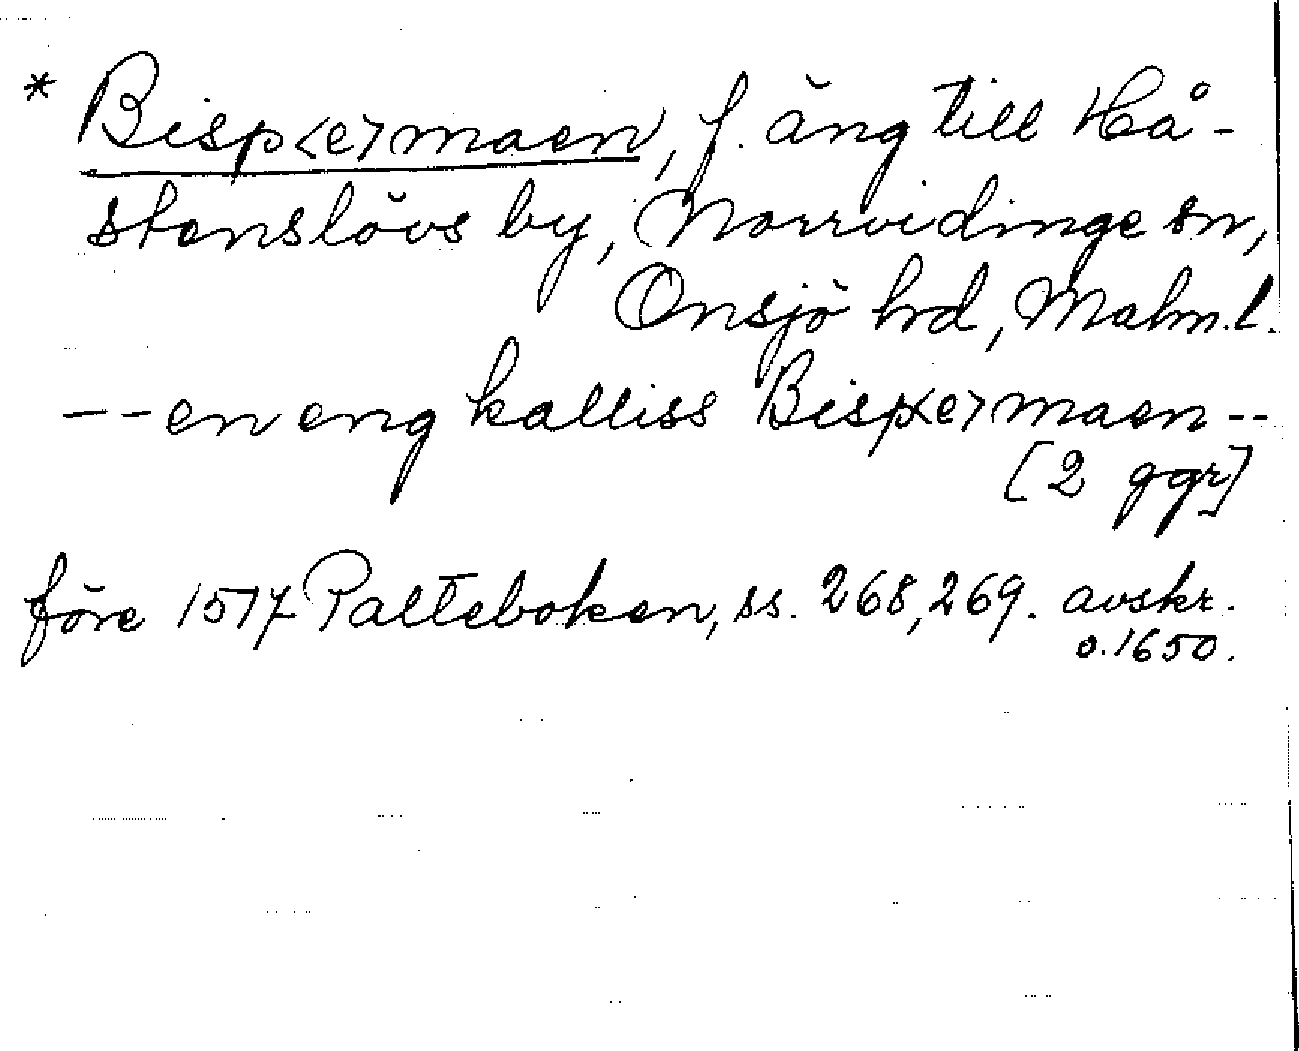 * Bisp<e>maen, f. äng till Hå-
stenslövs by, Norrvidinge sn,
Onsjö hd, Malm.l.
-- en eng kalliss Bisp<e>maen --
[2 ggr]
före 1517 Palteboken, ss. 268, 269. avskr.
o. 1650.